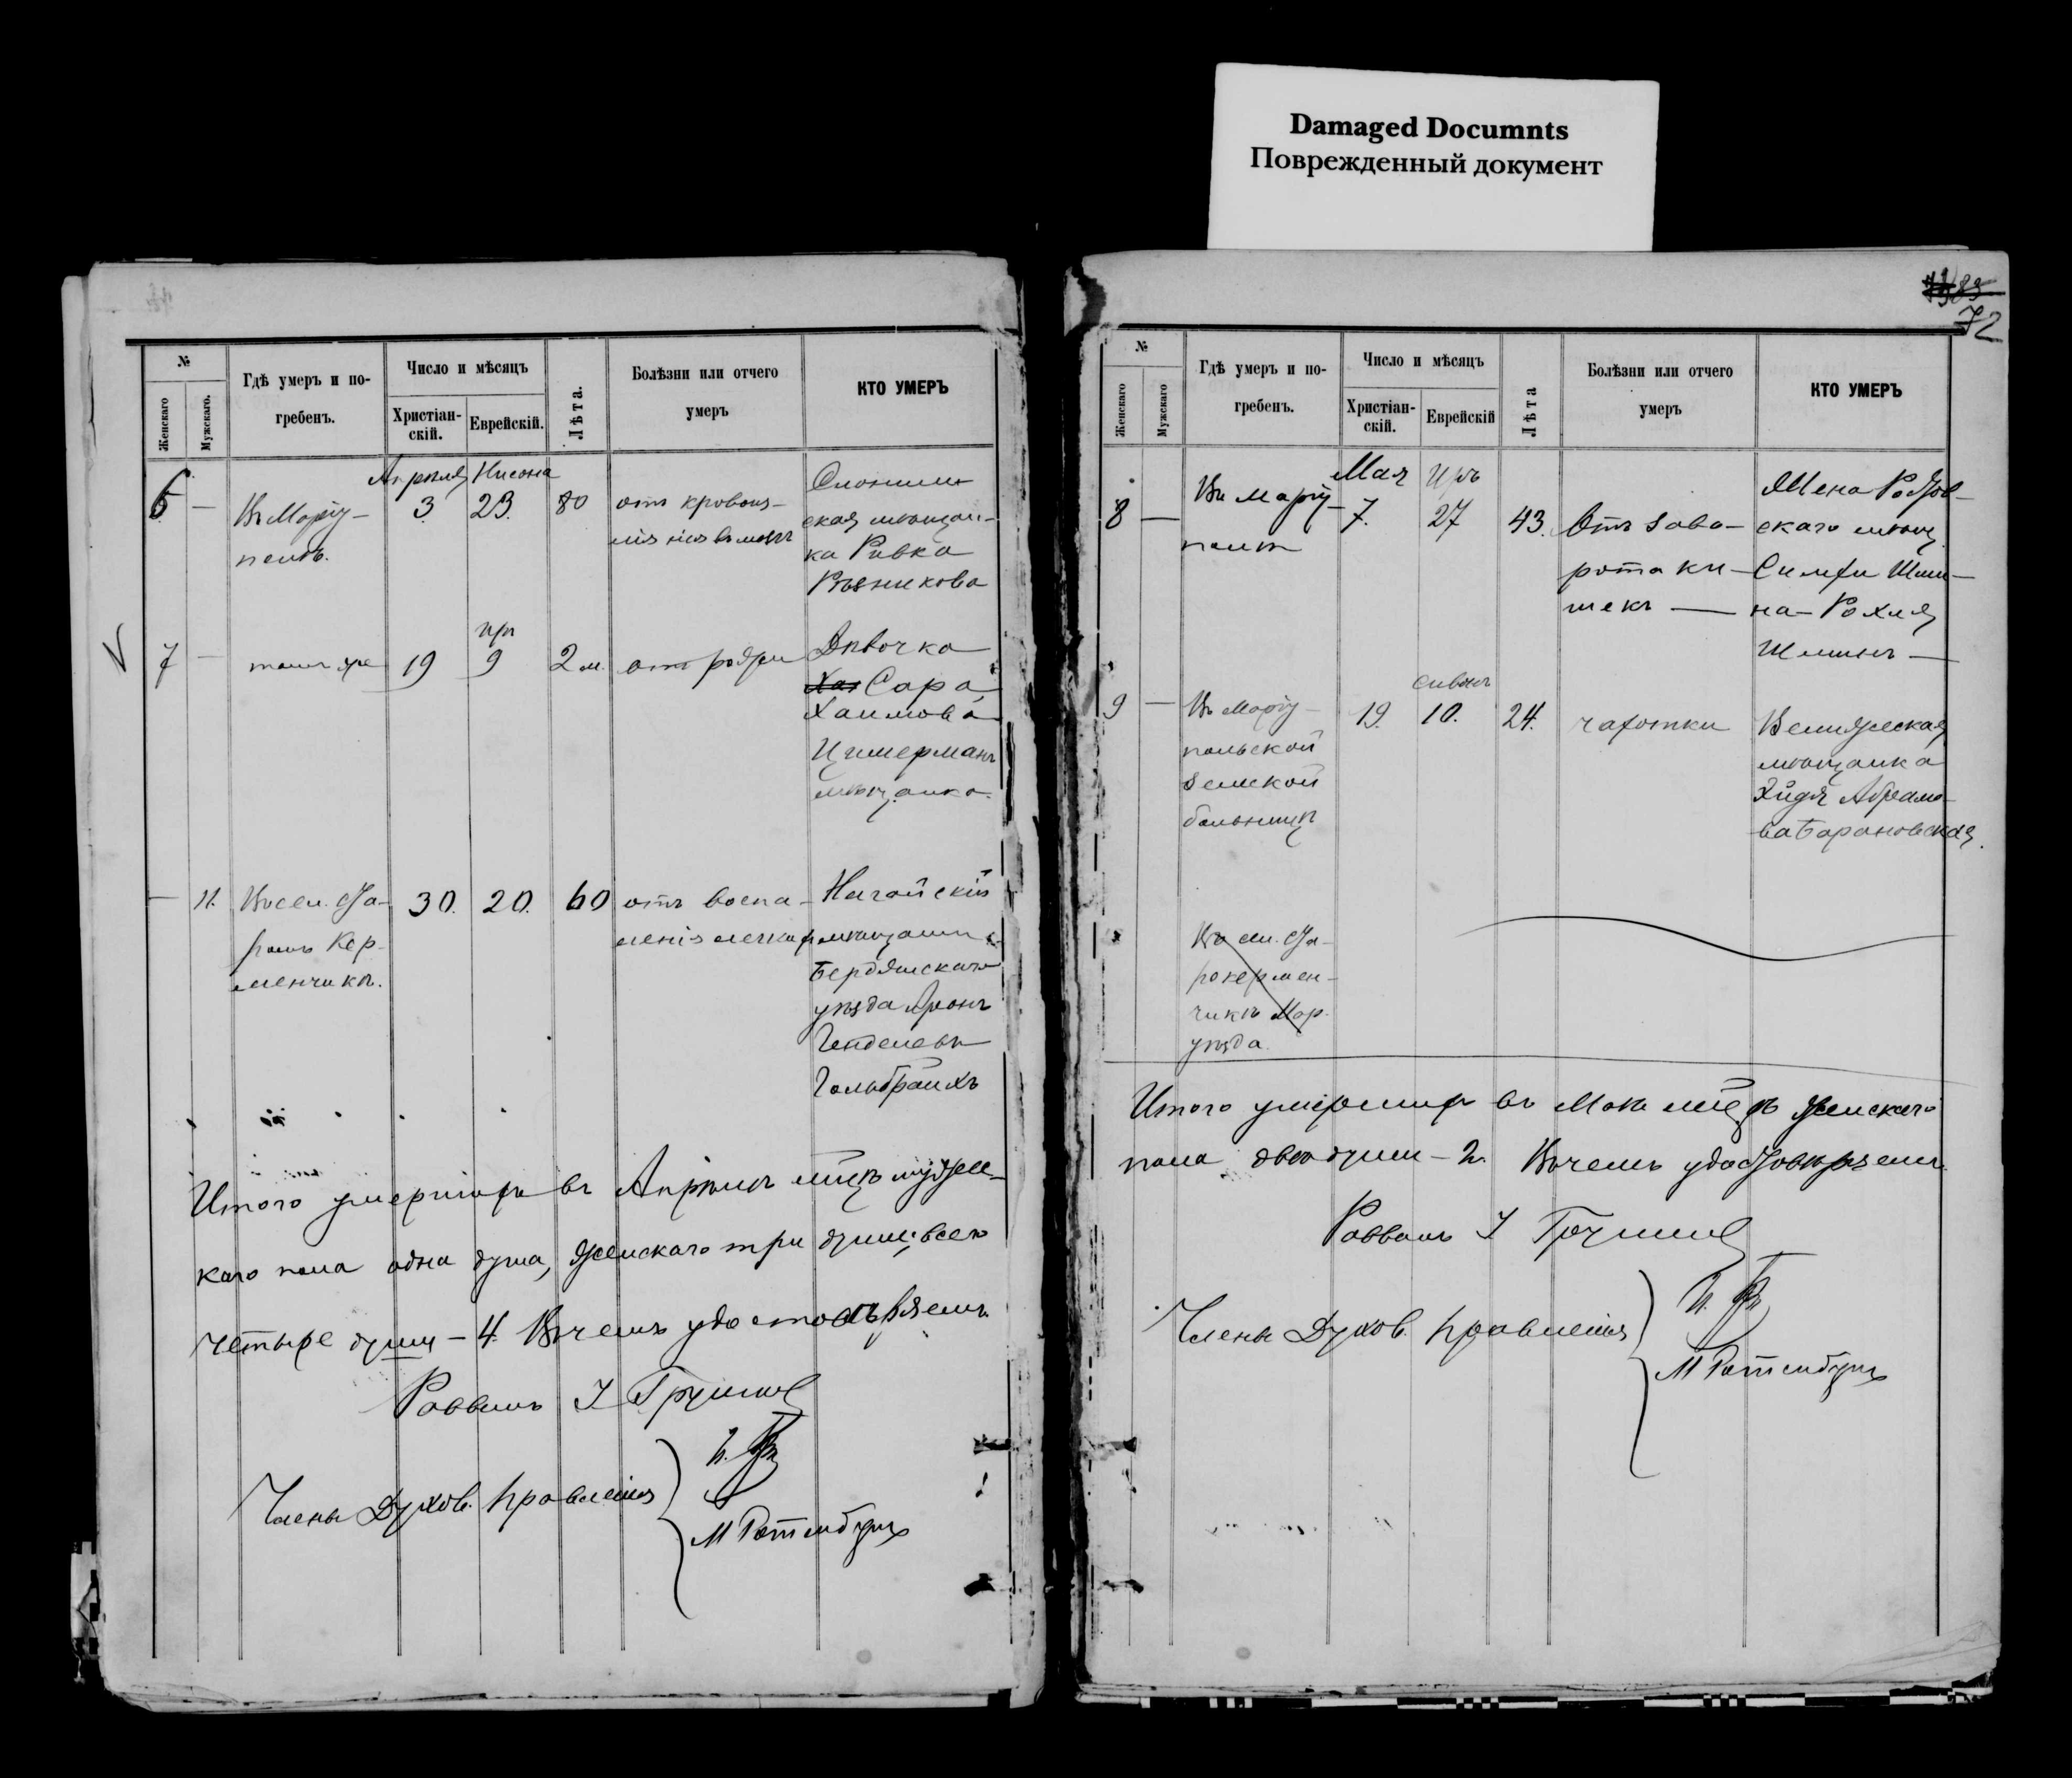 Damaged Documnts
Поврежденный документ
№
Женскаго
Мужскаго.
Гдѣ умеръ и по-
гребенъ.
Число и мѣсяцъ
Христіан-
скій.
Еврейскій.
Лѣта.
Болѣзни или отчего
умеръ
КТО УМЕРЪ
Апрѣля Нисона
6 — Въ Маріу-
полѣ.
3 23. 80
отъ кровоиз-
Слоним-
ская мѣщан-
ка Ривка
Рѣзникова
7 — тамъ же
19
9
2 м.
Дѣвочка
Сара
Хаимова
Цимерманъ
мѣщанка.
— 11.
Въ сел. Ста-
ромъ Кер-
менчикѣ.
30. 20. 60
отъ воспа-
ленія легких
Ногайскій
мѣщанинъ
Бердянскаго
уѣзда Аронъ
Гольбрайхъ
Итого умершихъ въ Апрѣлѣ мцѣ мужес-
каго пола одна душа, женскаго три души, всего
четыре души — 4. Въ чемъ удостовѣряемъ.
Раввинъ
Члены Духов. Правленія
М Ротенбургъ
72
№
Женскаго
Мужскаго
Гдѣ умеръ и по-
гребенъ.
Число и мѣсяцъ
Христіан-
скій.
Еврейскій
Лѣта
Болѣзни или отчего
умеръ
КТО УМЕРЪ
Мая Иръ
8 — Въ Маріу-
полѣ
7. 27 43.
Отъ заво-
рота ки-
шекъ —
Жена
скаго мѣщ.
Рохля
9 — Въ Маріу-
польской
земской
больницѣ
19.
Сивонъ
10. 24.
чахотки
Велижская
мѣщанка
Абрамо-
ва Барановская.
Въ сел. Ста-
рокермен-
чикѣ Мар.
уѣзда.
Итого умершихъ въ Маѣ мцѣ женскаго
пола двѣ души — 2. Въ чемъ удостовѣряемъ.
Раввинъ
Члены Духов. Правленія
М Ротенбургъ